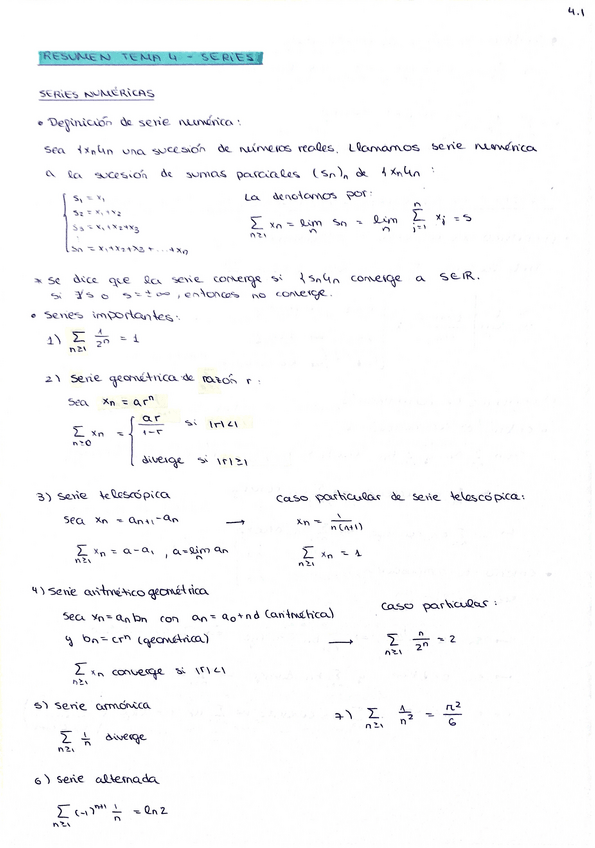 4.1
RESUMEN TEMA 4 - SERIES
SERIES NUMÉRICAS
• Definición de serie numérica:
Sea {xn}n una sucesión de números reales. Llamamos serie numérica
a la sucesión de sumas parciales (sn)n de {xn}n :
s1 = x1
s2 = x1+x2
s3 = x1+x2+x3
⋮
sn = x1+x2+x3+...+xn
La denotamos por:
∑n≥1 xn = lim n sn = lim n ∑j=1^n xj = s
* Se dice que la serie converge si {sn}n converge a s∈ℝ.
si ∄s o s=±∞, entonces no converge.
• Series importantes:
1) ∑n≥1 1/2^n = 1
2) Serie geométrica de razón r:
Sea xn = ar^n
∑n≥0 xn = { ar/1-r si |r|<1
diverge si |r|≥1
3) Serie telescópica
Sea xn = an+1-an →
∑n≥1 xn = a-a1 , a=lim n an
Caso particular de serie telescópica:
xn = 1/n(n+1)
∑n≥1 xn = 1
4) Serie aritmético geométrica
Sea xn=an bn con an=a0+nd (aritmética)
y bn=cr^n (geométrica) →
∑n≥1 xn converge si |r|<1
Caso particular:
∑n≥1 n/2^n = 2
5) Serie armónica
∑n≥1 1/n diverge
7) ∑n≥1 1/n^2 = π^2/6
6) Serie alternada
∑n≥1 (-1)^n+1 1/n = ln2